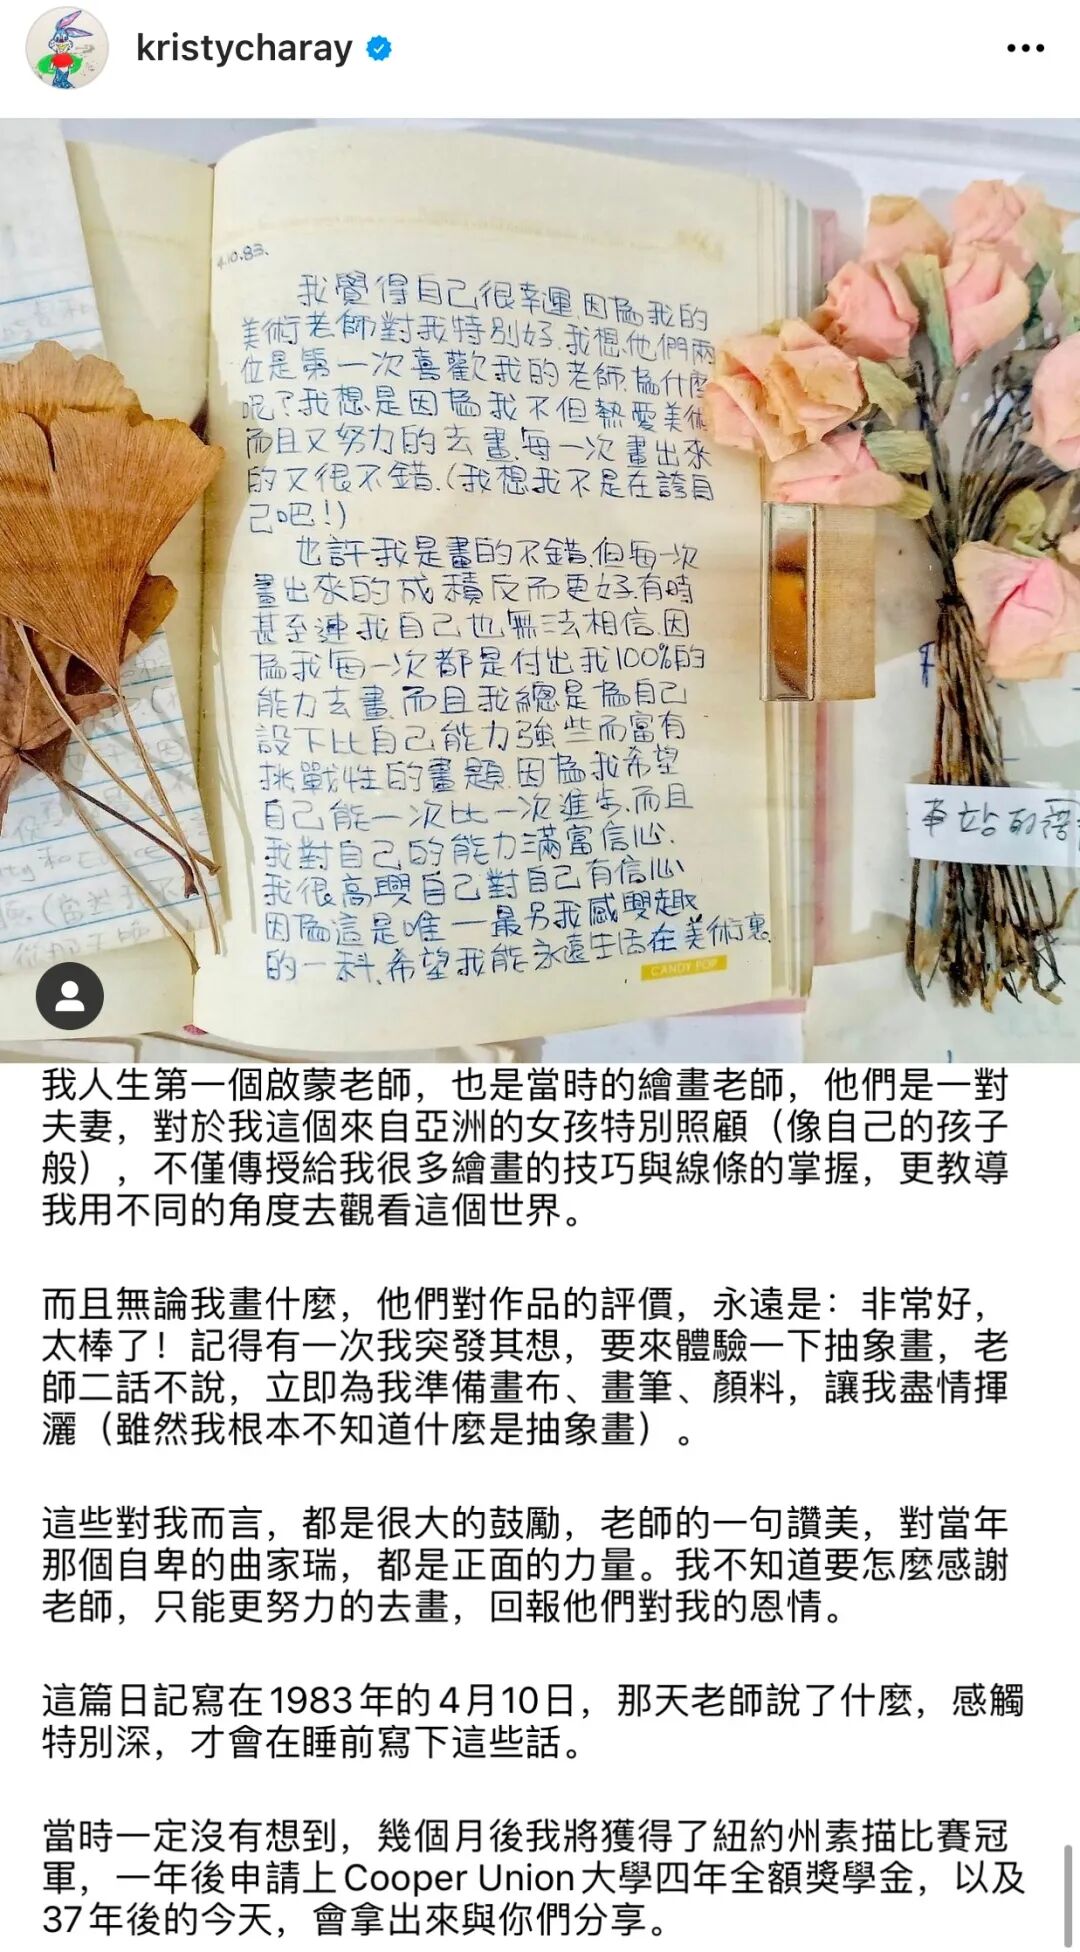 kristycharay
4.10.83.
我覺得自己很幸運.因為我的
美術老師對我特別好.我想.他們兩
位是第一次喜歡我的老師.為什麼
呢?我想.是因為我不但熱愛美術
而且又努力的去畫.每一次畫出來
的又很不錯.(我想我不是在誇自
己吧!)
也許我是畫的不錯.但每一次
畫出來的成積反而更好.有時
甚至連我自己也無法相信.因
為我每一次都是付出我100%的
能力去畫.而且我總是為自己
設下比自己能力強些而富有
挑戰性的畫題.因為我希望
自己能一次比一次進步.而且
我對自己的能力滿富信心.
我很高興自己對自己有信心
因為這是唯一最另我感興趣
的一科.希望我能永遠生活在美術裏.
CANDY POP
車站的
我人生第一個啟蒙老師，也是當時的繪畫老師，他們是一對
夫妻，對於我這個來自亞洲的女孩特別照顧（像自己的孩子
般），不僅傳授給我很多繪畫的技巧與線條的掌握，更教導
我用不同的角度去觀看這個世界。
而且無論我畫什麼，他們對作品的評價，永遠是：非常好，
太棒了！記得有一次我突發其想，要來體驗一下抽象畫，老
師二話不說，立即為我準備畫布、畫筆、顏料，讓我盡情揮
灑（雖然我根本不知道什麼是抽象畫）。
這些對我而言，都是很大的鼓勵，老師的一句讚美，對當年
那個自卑的曲家瑞，都是正面的力量。我不知道要怎麼感謝
老師，只能更努力的去畫，回報他們對我的恩情。
這篇日記寫在1983年的4月10日，那天老師說了什麼，感觸
特別深，才會在睡前寫下這些話。
當時一定沒有想到，幾個月後我將獲得了紐約州素描比賽冠
軍，一年後申請上Cooper Union大學四年全額獎學金，以及
37年後的今天，會拿出來與你們分享。